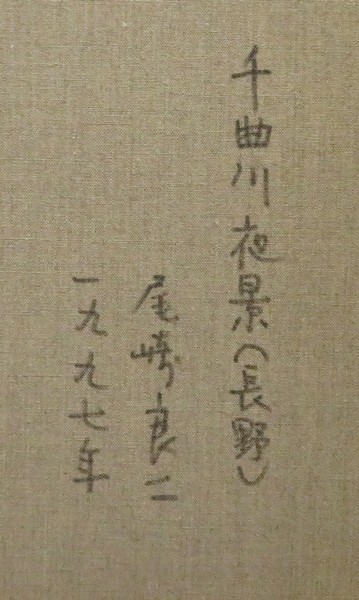 千曲川夜景(長野)
尾崎良二
一九九七年